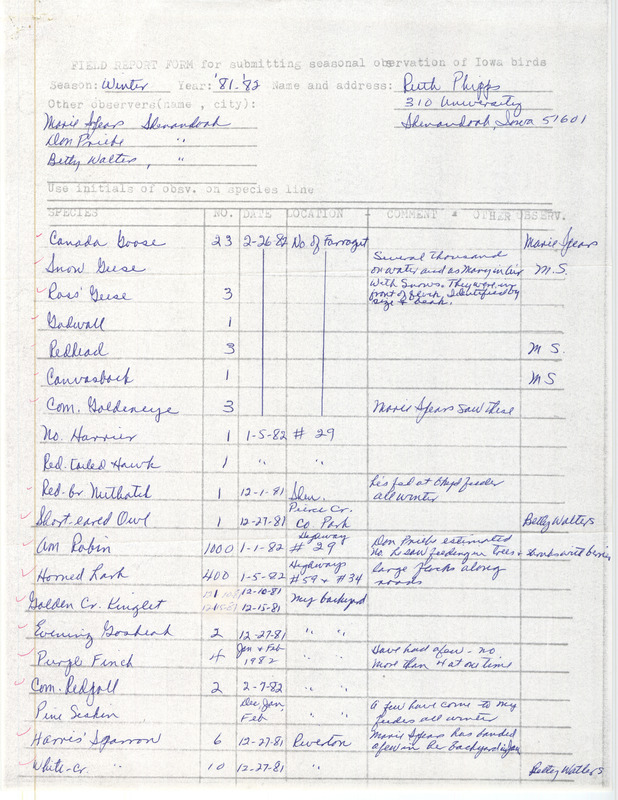 FIELD REPORT FORM for submitting seasonal obervation of Iowa birds
Season: Winter Year: '81-'82 Name and address: Ruth Phipps
Other observers(name , city): 310 University
Marie Spears Shenandoah Shenandoah, Iowa 51601
Don Priebe "
Betty Walters, "
Use initials of obsv. on species line
SPECIES NO. DATE LOCATION - COMMENT & OTHER OBSERV.
Canada Goose 23 2-26-82 No. of Farragut Marie Spears
Snow Geese Several thousand on water and as many in air M.S.
Ross' Geese 3 With Snows. They were in front of Identified by size & beak.
Gadwall 1
Redhead 3 M S.
Canvasback 1 M S
Com. Goldeneye 3 Marie Spears saw these
No. Harrier 1 1-5-82 # 29
Red-tailed Hawk 1 " "
Red-br Nuthatch 1 12-1-81 Shen. his fed at feeder all winter
Short-eared Owl 1 12-27-81 Pierce Cr. Co Park Betty Walters
Am Robin 1000 1-1-82 Highway # 29 Don Priebe estimated No. he saw feeding in trees & shrubs with berries
Horned Lark 400 1-5-82 Highways # 59 & # 34 large flocks along roads
Golden Cr. Kinglet 12-10-81 12-15-81 my backyard
Evening Grosbeak 2 12-27-81 " "
Purple Finch 4 Jan & Feb 1982 " " Have had a few - no more than 4 at one time
Com. Redpoll 2 2-7-82 " "
Pine Siskin Dec, Jan, Feb " " A few have come to my feeders all winter
Harris' Sparrow 6 12-27-81 Riverton Marie Spears has banded a few in her backyard in Jan
White-Cr. " 10 12-27-81 " Betty Walters